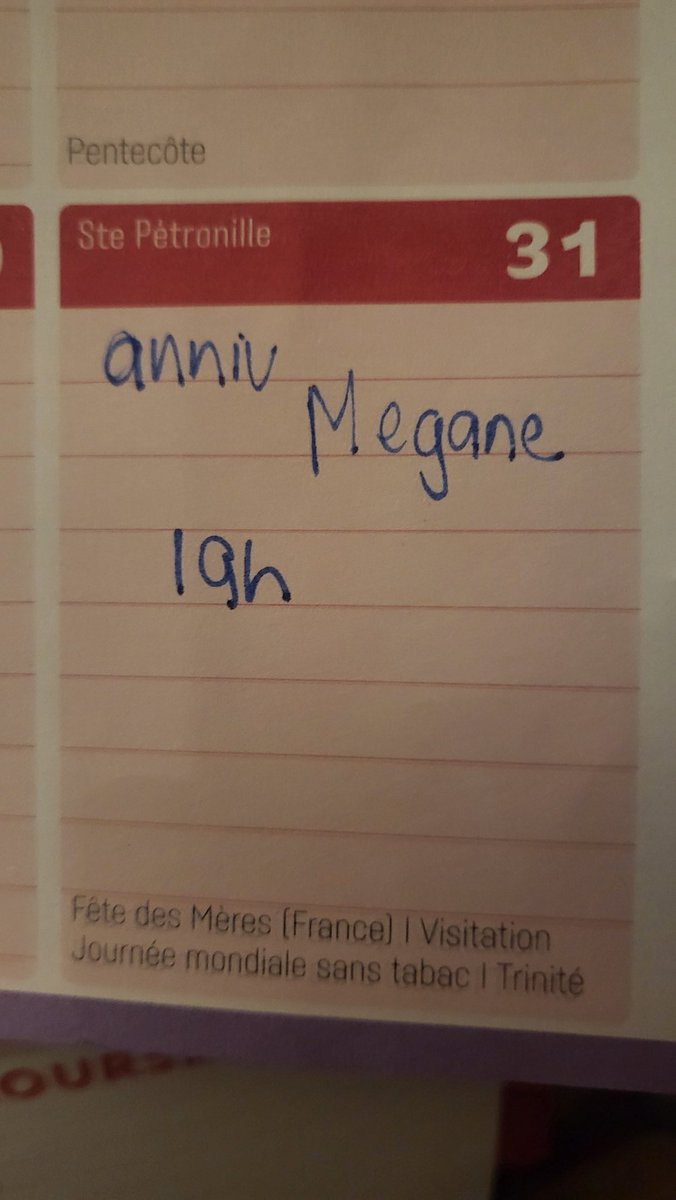 Pentecôte
Ste Pétronille 31
anniv
Megane
19h
Fête des Mères (France) | Visitation
Journée mondiale sans tabac | Trinité